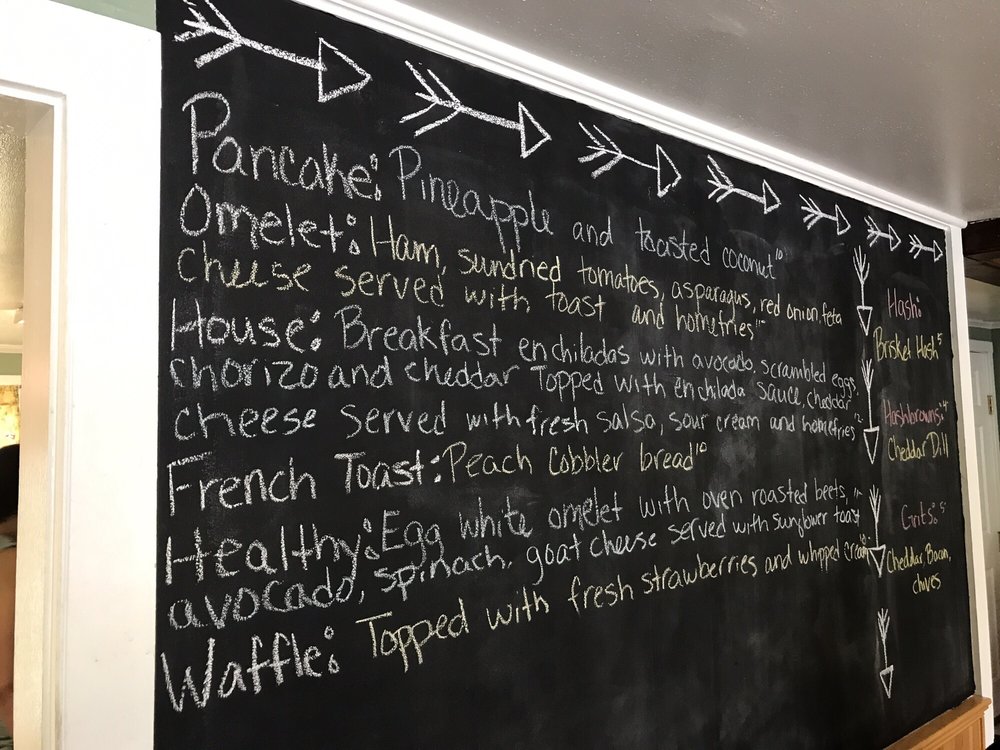 Pancake: Pineapple and toasted coconut 10
Omelet: Ham, sundried tomatoes, asparagus, red onion, feta
cheese served with toast and homefries 11
House: Breakfast enchiladas with avocado, scrambled eggs,
chorizo and cheddar Topped with enchilada sauce, cheddar
cheese served with fresh salsa, sour cream and homefries 12
French Toast: Peach Cobbler bread 10
Healthy: Egg white omelet with oven roasted beets, 11
avocado, spinach, goat cheese served with sunflower toast
Waffle: Topped with fresh strawberries and whipped cream 10
Hash:
Brisket Hash 5
Hashbrowns: 4
Cheddar Dill
Grits: 5
Cheddar, Bacon,
chives